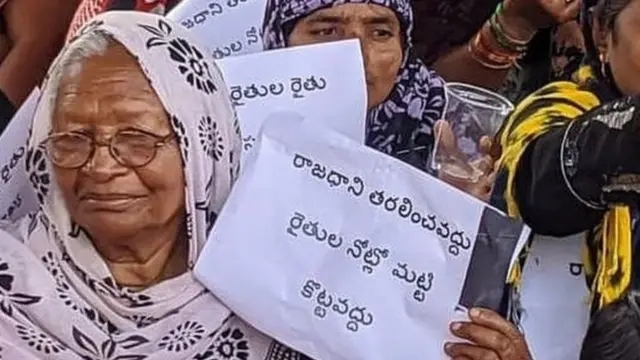 రాజధాని
రైతుల
రైతుల రైతు
రైతు
రాజధాని తరలించవద్దు
రైతుల నోట్లో మట్టి
కొట్టవద్దు